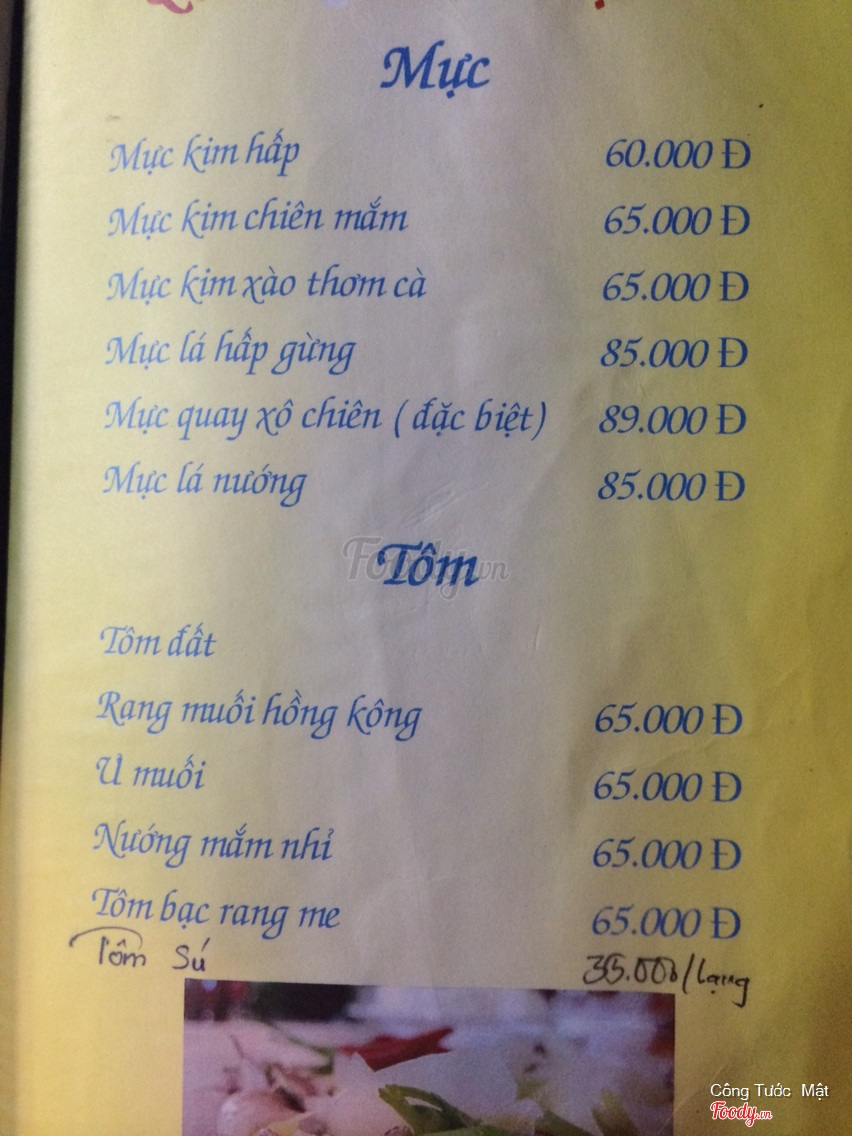 Mực
Mực kim hấp 60.000 Đ
Mực kim chiên mắm 65.000 Đ
Mực kim xào thơm cà 65.000 Đ
Mực lá hấp gừng 85.000 Đ
Mực quay xô chiên ( đặc biệt) 89.000 Đ
Mực lá nướng 85.000 Đ
Foody.vn
Tôm
Tôm đất
Rang muối hồng kông 65.000 Đ
Ủ muối 65.000 Đ
Nướng mắm nhỉ 65.000 Đ
Tôm bạc rang me 65.000 Đ
Tôm Sú 35.000/lạng
Công Tước Mật
Foody.vn